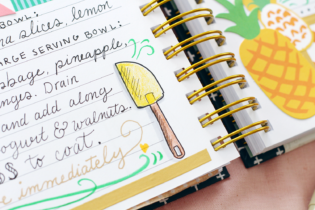 BOWL:
slices, lemon
ARGE SERVING BOWL:
bbage, pineapple,
nges. Drain
and add along
ogurt & walnuts.
ss to coat.
e immediately